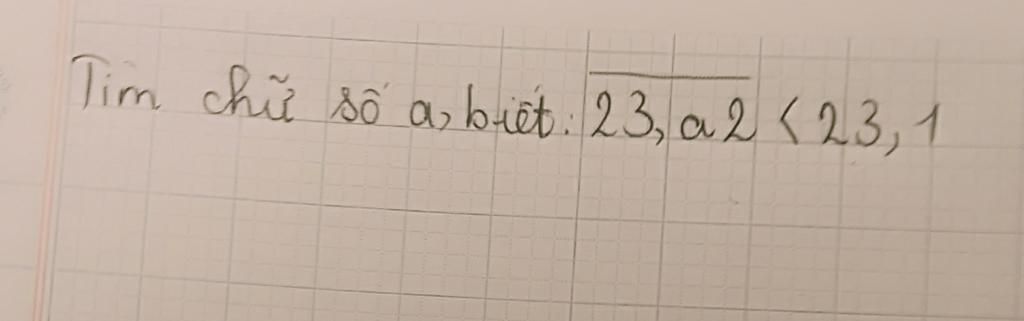 Tìm chữ số a, biết: \overline{23,a2} < 23,1